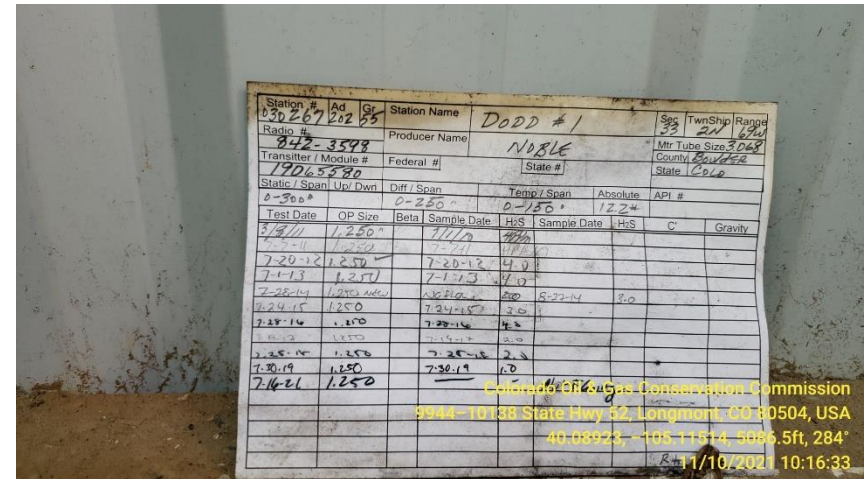 Station # Ad Gr Station Name DODD #1 Sec TwnShip Range
030267 202 55 33 2N 69W
Radio # 842-3598 Producer Name NOBLE Mtr Tube Size 3.068
Transitter / Module # Federal # State # County Boulder
19065580 State Colo
Static / Span Up/Dwn Diff / Span Temp / Span Absolute API #
0-300# 0-250" 0-150° 12.2#
Test Date OP Size Beta Sample Date H2S Sample Date H2S C' Gravity
3/8/11 1.250"
1.250
7-20-12 1.250 7-20-12 4.0
7-1-13 1.250 7-1-13 4.0
7-28-14 1.250 NEW 8-22-14 3.0
7.24.15 1.250 7.24.15 3.0
7.28.16 1.250 7.28.16
1.250 2.0
1.250 2.0
7.30.19 1.250 7.30.19 1.0
7-16-21 1.250
Colorado Oil & Gas Conservation Commission
9944–10138 State Hwy 52, Longmont, CO 80504, USA
40.08923, -105.11514, 5086.5ft, 284°
11/10/2021 10:16:33